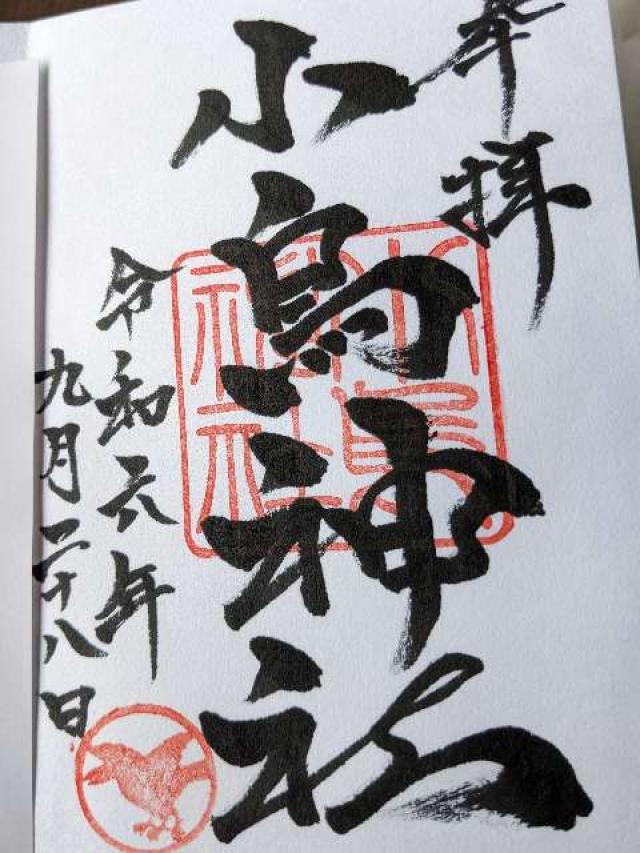 奉拝
小烏神社
令和六年
九月二十八日
小烏
神社